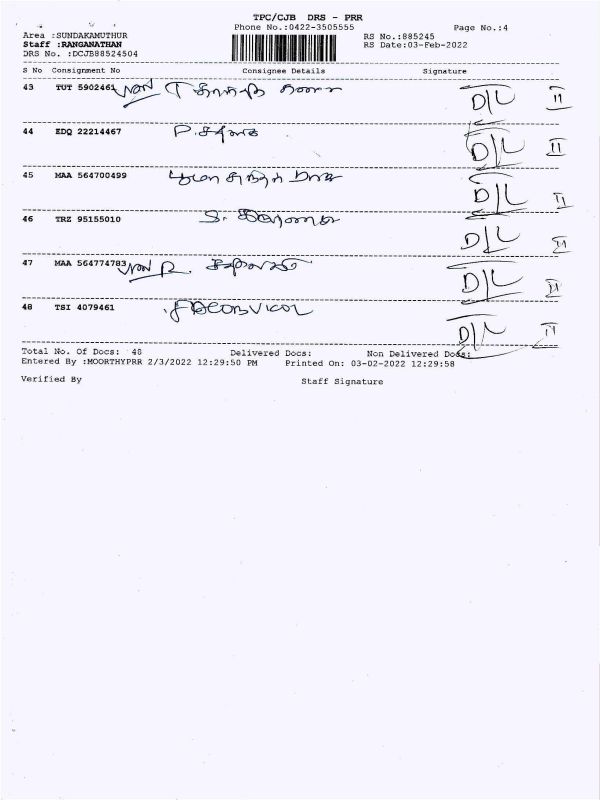 TPC/CJB DRS - PRR
Phone No.:0422-3505555
Page No.:4
Area :SUNDAKAMUTHUR
RS No.:885245
Staff :RANGANATHAN
RS Date:03-Feb-2022
DRS No. :DCJB88524504
S No Consignment No Consignee Details Signature
43 TUT 5902461 D/L II
44 EDQ 22214467 P. D/L II
45 MAA 564700499 D/L II
46 TRZ 95155010 S. D/L II
47 MAA 564774783 R. D/L II
48 TSI 4079461 D/L II
Total No. Of Docs: 48 Delivered Docs: Non Delivered Docs:
Entered By :MOORTHYPRR 2/3/2022 12:29:50 PM Printed On: 03-02-2022 12:29:58
Verified By Staff Signature